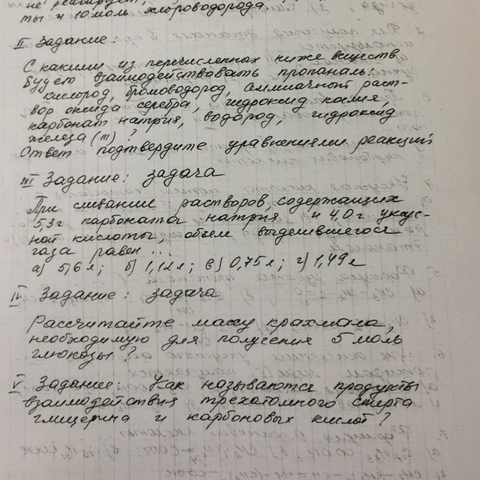 не реагирует,
ты и 10 моль хлороводорода.
II Задание.
С какими из перечисленных ниже веществ
будет взаимодействовать пропаналь:
кислород, бромоводород, аммиачный раст-
вор оксида серебра, гидроксид калия,
карбонат натрия, водород, гидроксид
железа (III)?
Ответ подтвердите уравнениями реакций
III Задание: задача
При сливании растворов, содержащих
5,3 г карбоната натрия и 4,0 г уксус-
ной кислоты, объем выделившегося
газа равен ...
а) 5,6 л; б) 1,12 л; в) 0,75 л; г) 1,49 л
IV Задание: задача
Рассчитайте массу крахмала,
необходимую для получения 5 моль
глюкозы?
V Задание: Как называются продукты
взаимодействия трехатомного спирта
глицерина и карбоновых кислот?